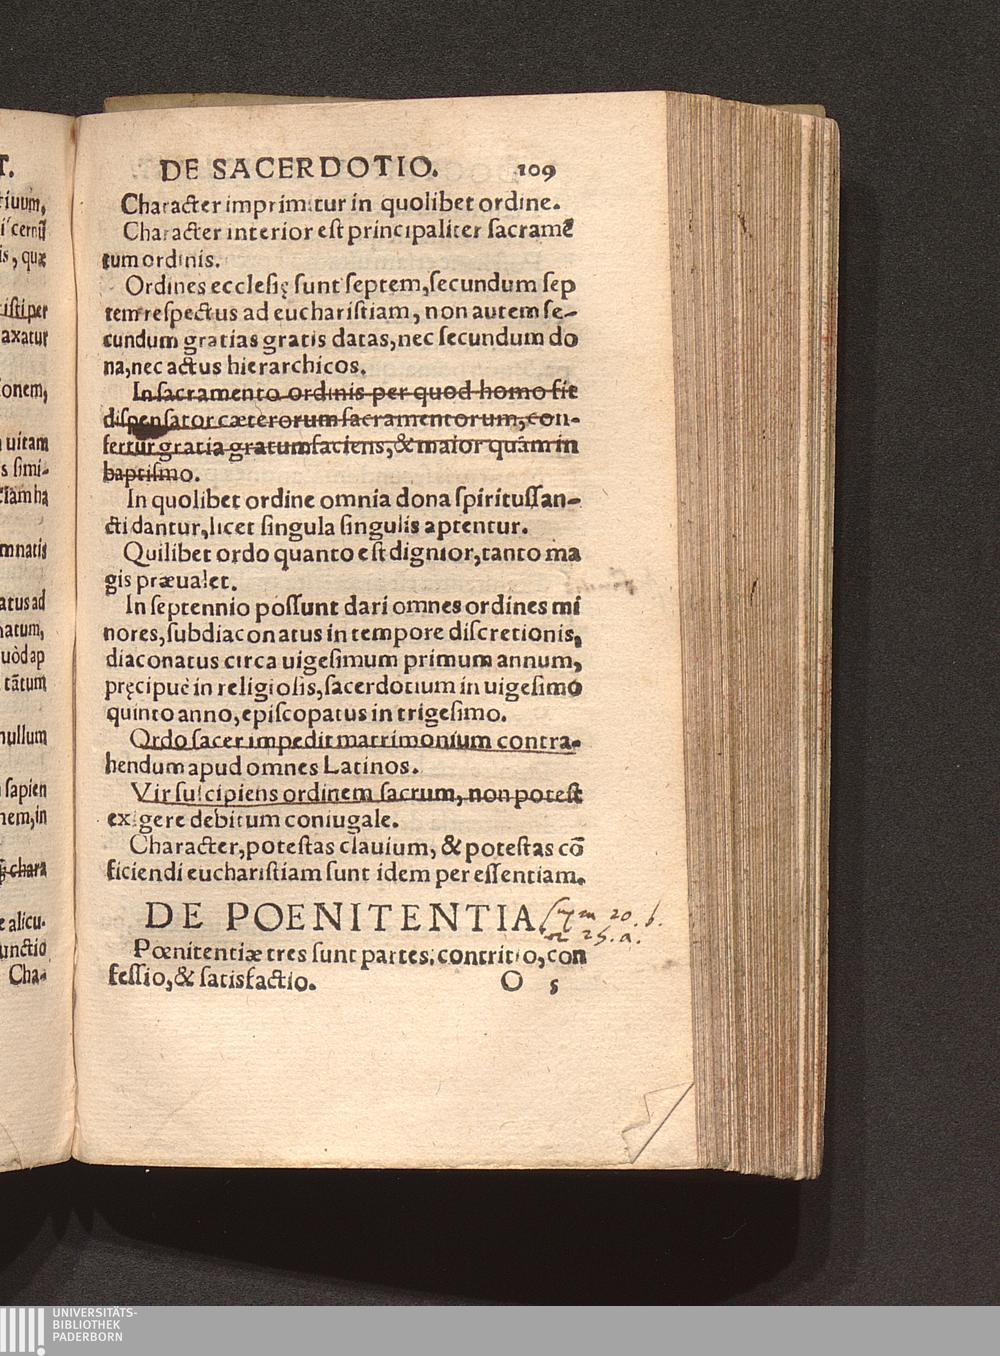 T.
riuum,
i cernũ
is, quæ
isti per
axatur
onem,
uitam
s simi-
nnatis
atus ad
natum,
uòd ap
tãtum
nullum
sapien
nem, in
chara
e alicu-
unctio
Cha-
DE SACERDOTIO. 109
Character imprimitur in quolibet ordine.
Character interior est principaliter sacramẽ
tum ordinis.
Ordines ecclesię sunt septem, secundum sep
tem respectus ad eucharistiam, non autem se-
cundum gratias gratis datas, nec secundum do
na, nec actus hierarchicos.
In sacramento ordinis per quod homo fit
dispensator cæterorum sacramentorum, con-
fertur gratia gratum faciens, & maior quàm in
baptismo.
In quolibet ordine omnia dona spiritussan-
cti dantur, licet singula singulis aptentur.
Quilibet ordo quanto est dignior, tanto ma
gis præualet.
In septennio possunt dari omnes ordines mi
nores, subdiaconatus in tempore discretionis,
diaconatus circa uigesimum primum annum,
pręcipuè in religiosis, sacerdotium in uigesimo
quinto anno, episcopatus in trigesimo.
Ordo sacer impedit matrimonium contra-
hendum apud omnes Latinos.
Vir suscipiens ordinem sacrum, non potest
exigere debitum coniugale.
Character, potestas clauium, & potestas cõ
ficiendi eucharistiam sunt idem per essentiam.
DE POENITENTIA
20. b.
25. a.
Pœnitentiæ tres sunt partes: contritio, con
fessio, & satisfactio.
O 5
UNIVERSITÄTS-
BIBLIOTHEK
PADERBORN